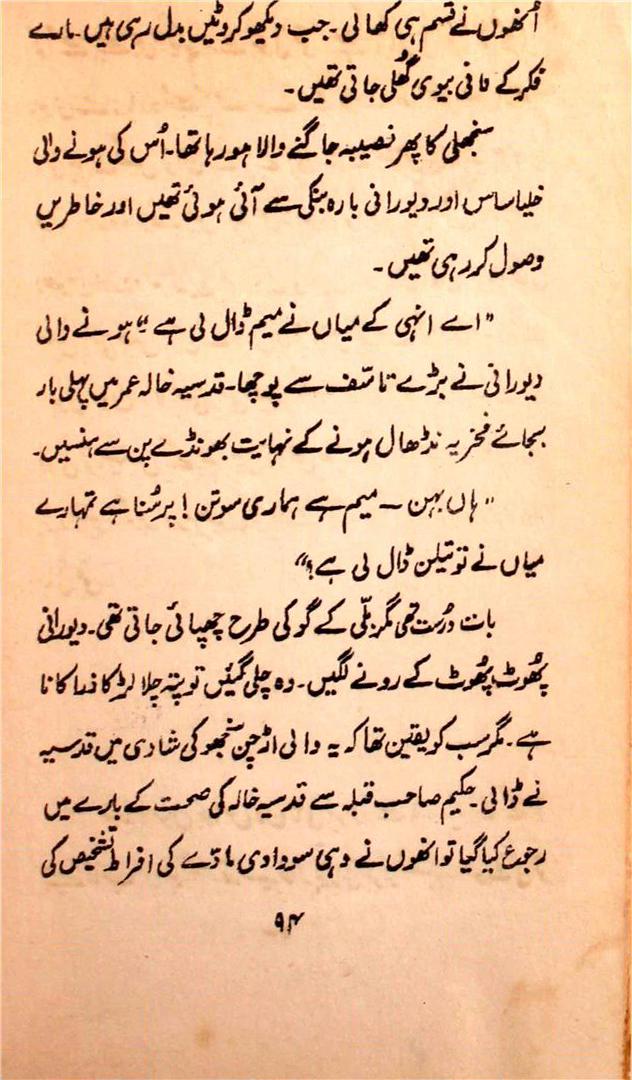 اُنھوں نے قسم ہی کھا لی۔ جب دیکھو کروٹیں بدل رہی ہیں۔ مارے
فکر کے نانی بیوی گھُلی جاتی تھیں۔
سنجھلی کا پھر نصیبہ جاگنے والا ہو رہا تھا۔ اُس کی ہونے والی
خلیا ساس اور دیورانی بارہ بنکی سے آئی ہوئی تھیں اور خاطریں
وصول کر رہی تھیں۔
"اے انہی کے میاں نے میم ڈال لی ہے؟" ہونے والی
دیورانی نے بڑے تاسّف سے پوچھا۔ قدسیہ خالہ عمر میں پہلی بار
بجائے فخریہ نڈھال ہونے کے نہایت بھونڈے پن سے ہنسیں۔
"ہاں بہن ــ میم ہے ہماری سوتن! پر سُنا ہے تمہارے
میاں نے تو تیلن ڈال لی ہے؟"
بات درست تھی مگر بلّی کے گو کی طرح چھپائی جاتی تھی۔ دیورانی
پھُوٹ پھُوٹ کے رونے لگیں۔ وہ چلی گئیں تو پتہ چلا لڑکا ذرا کانا
ہے۔ مگر سب کو یقین تھا کہ یہ والی اڑچن سنجھو کی شادی میں قدسیہ
نے ڈالی۔ حکیم صاحب قبلہ سے قدسیہ خالہ کی صحت کے بارے میں
رجوع کیا گیا تو انھوں نے وہی سوداوی مادّے کی افراط تشخیص کی
۹۴